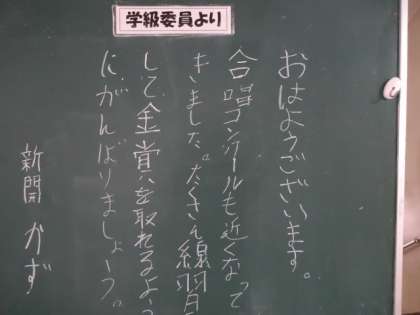 学級委員より
おはようございます。
合唱コンクールも近くなって
きました。たくさん練習を
して金賞を取れるよう
にがんばりましょう。
新開 かず